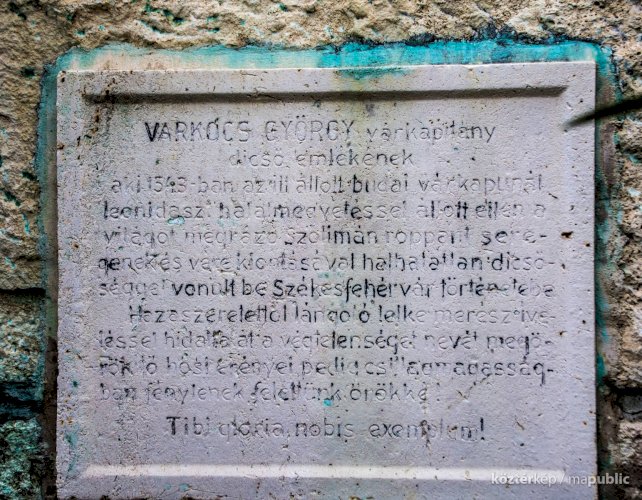 VARKOCS GYÖRGY várkapitány
dicső emlékének
aki 1543-ban az itt állott budai várkapunál
leonidaszi halálmegvetéssel állott ellen a
világot megrázó Szolimán roppant sere-
gének és vére kiontásával halhatatlan dicső-
séggel vonult be Székesfehérvár történetébe
Hazaszeretettől lángoló lelke merész íve-
léssel hidalta át a végtelenséget nevét megö-
rökítő hősi erényei pedig csillagmagasság-
ban fénylenek felettünk örökké.
Tibi gloria, nobis exemplum!
köztérkép / mapublic